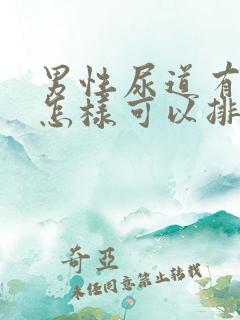 男性尿道有
怎样可以排
奇亞
未经同意禁止转载